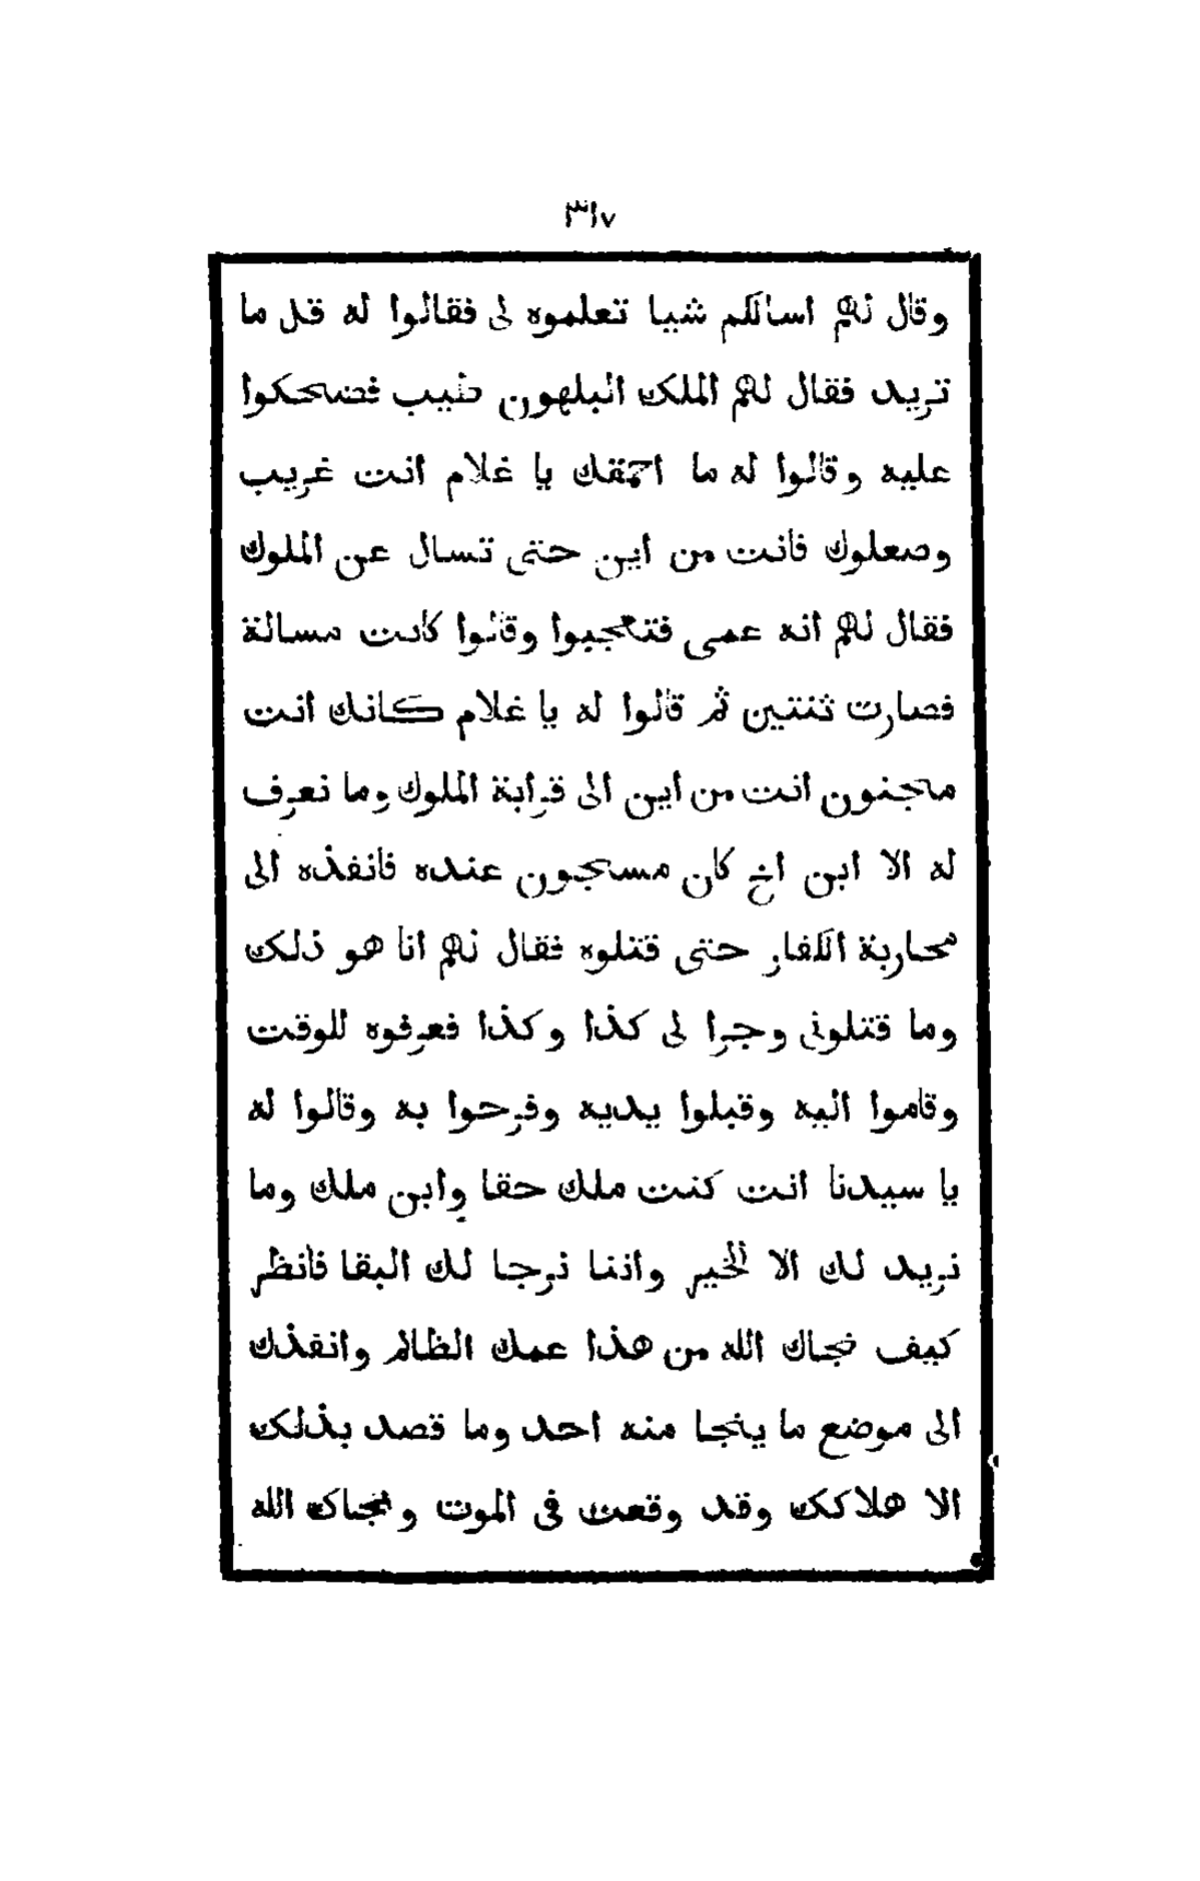 ٣١٧
وقال لهم اسالكم شيا تعلموه لى فقالوا له قل ما
تريد فقال لهم الملك البلهون طيب فضحكوا
عليه وقالوا له ما احمقك يا غلام انت غريب
وصعلوك فانت من اين حتى تسال عن الملوك
فقال لهم انه عمى فتعجبوا وقالوا كانت مسالة
فصارت ثنتين ثم قالوا له يا غلام كانك انت
مجنون انت من اين الى قرابة الملوك وما نعرف
له الا ابن اخ كان مسجون عنده فانفذه الى
محاربة الكفار حتى قتلوه فقال لهم انا هو ذلك
وما قتلونى وجرا لى كذا وكذا فعرفوه للوقت
وقاموا اليه وقبلوا يديه وفرحوا به وقالوا له
يا سيدنا انت كنت ملك حقا وابن ملك وما
نريد لك الا الخير واننا نرجا لك البقا فانظر
كيف نجاك الله من هذا عمك الظالم وانفذك
الى موضع ما ينجا منه احد وما قصد بذلك
الا هلاكك وقد وقعت فى الموت ونجاك الله